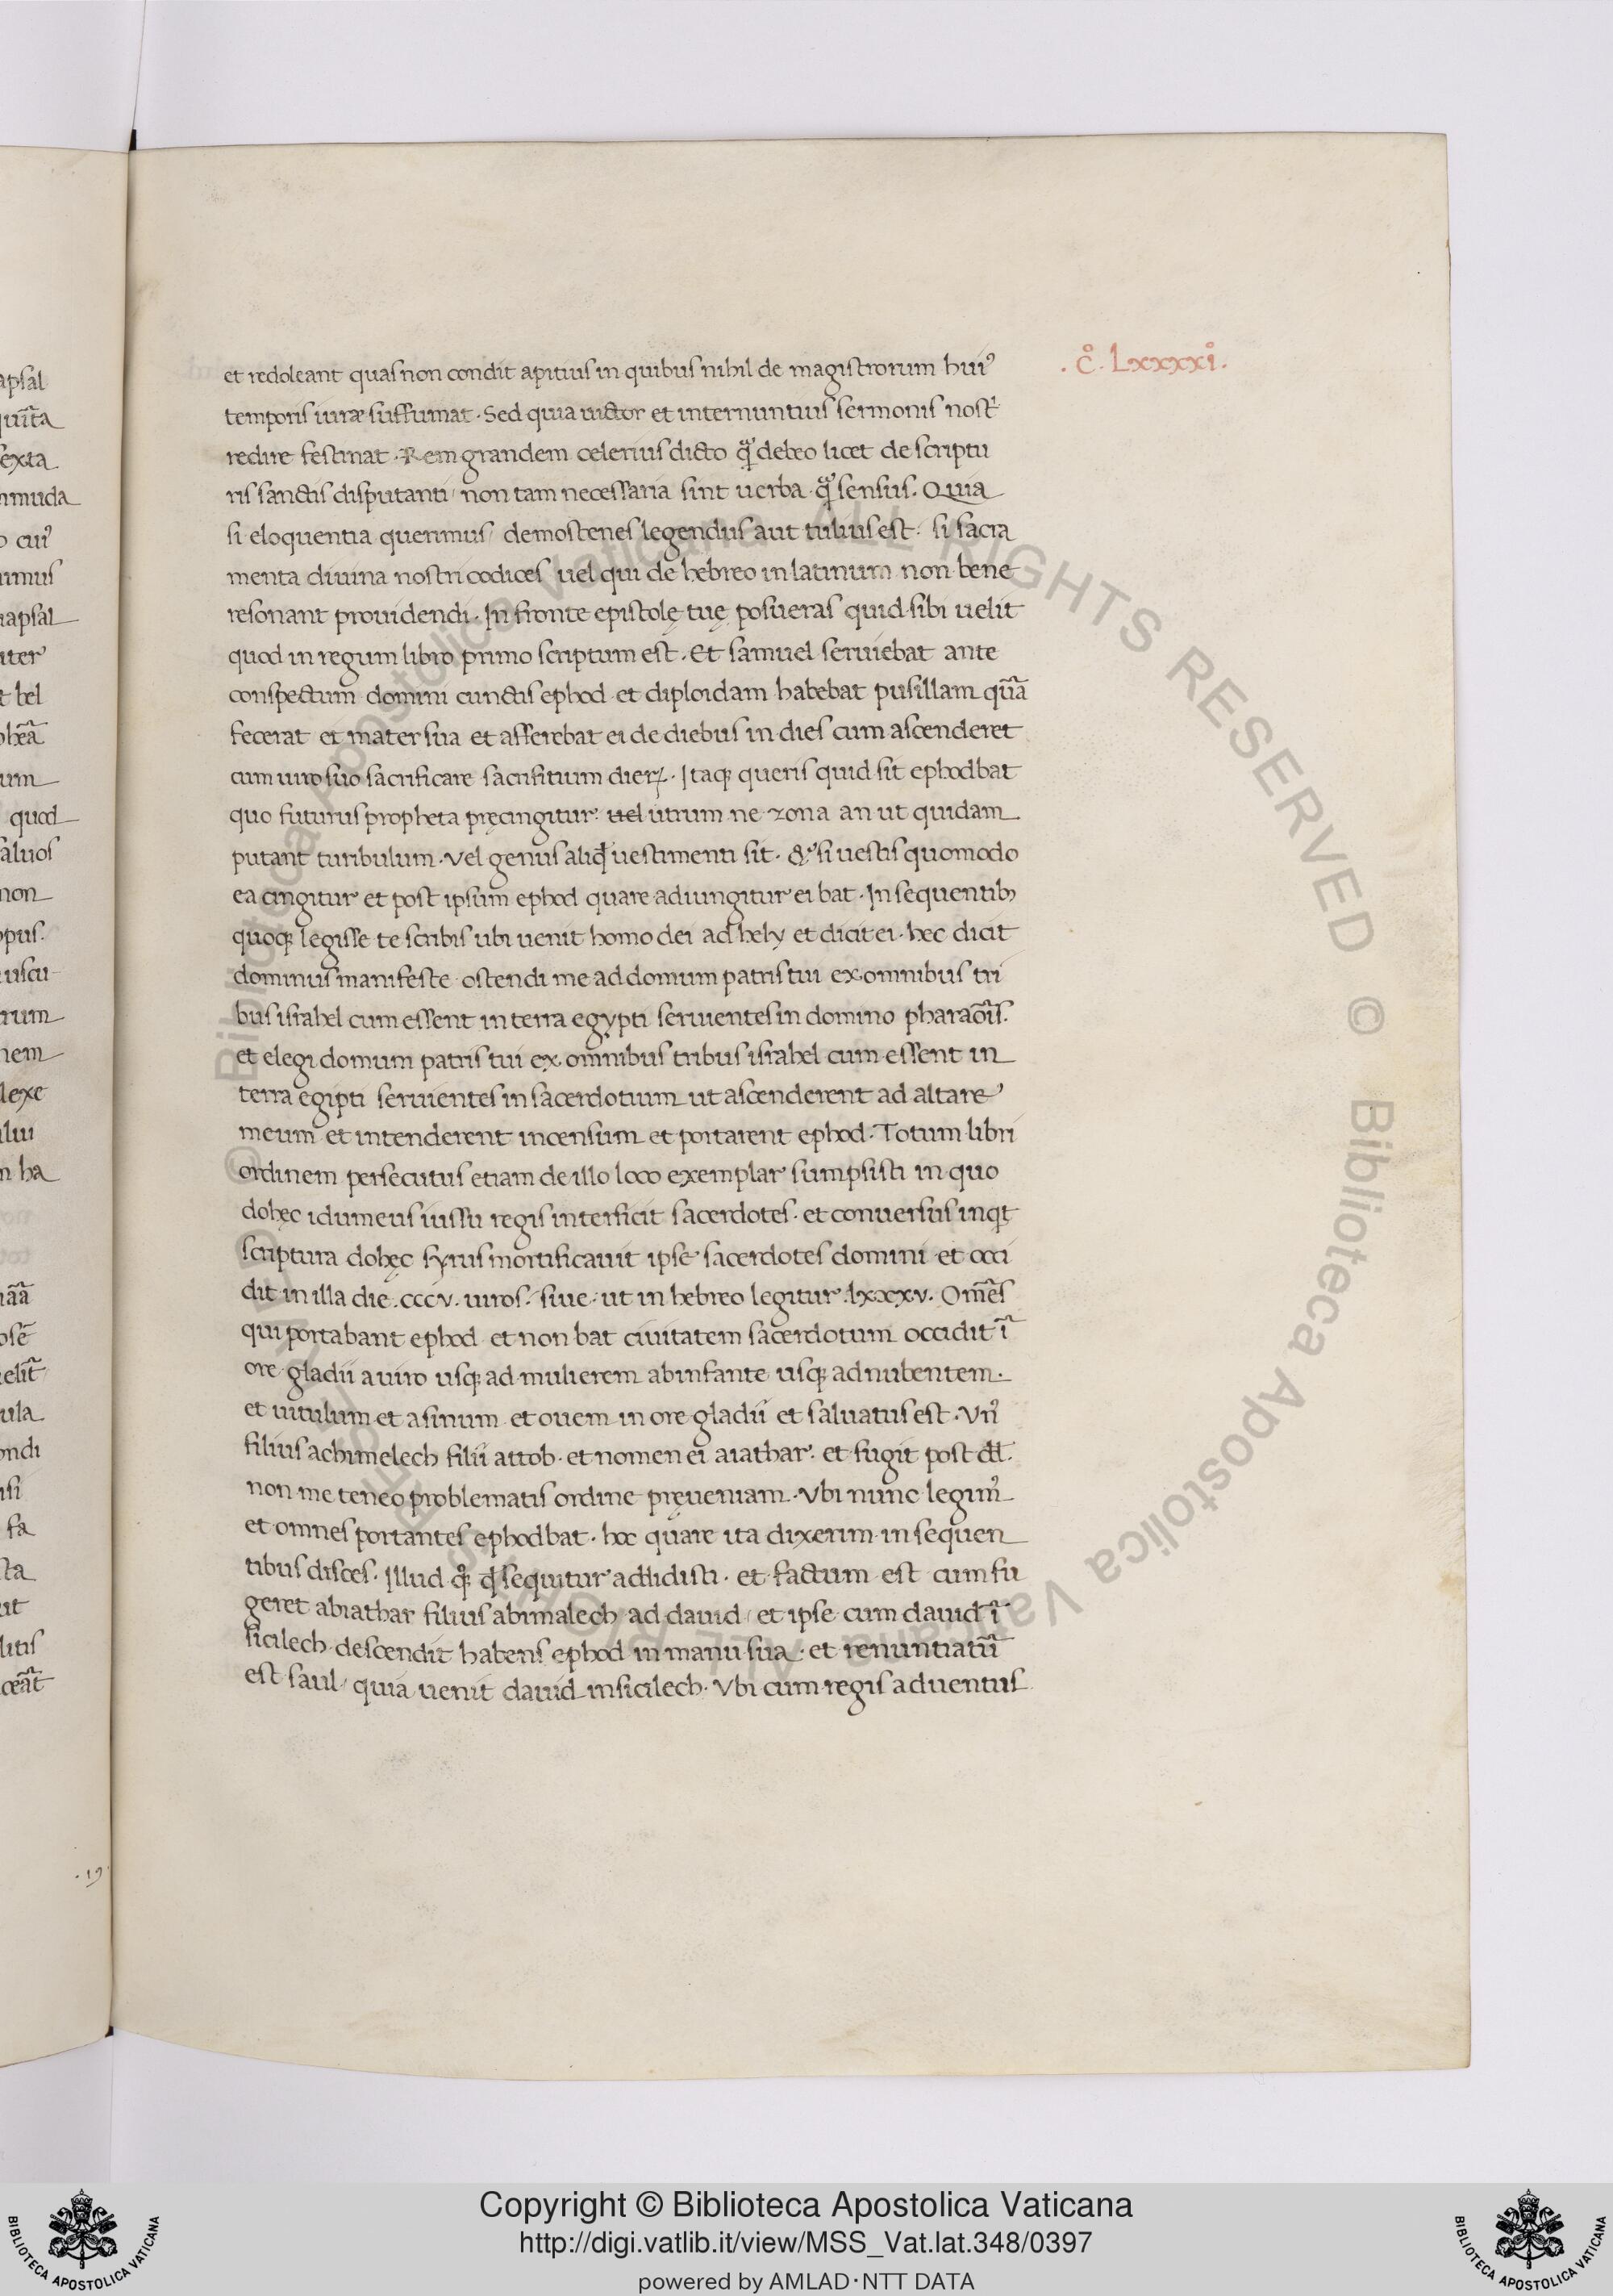 .c̊. Lxxxxi̊.
et redoleant quas non condit apitius in quibus nihil de magistrorum hui᾽
temporis iuræ suffumat. Sed quia uictor et internuntius sermonis nost᾽
redire festinat. Rem grandem celerius dicto q̃ debeo licet de scriptu
ris sanctis disputanti/ non tam necessaria sint uerba q̃ sensus. Quia
si eloquentia querimus/ demostenes legendus aut tulius est. si sacra
menta diuina nostri codices uel qui de hebreo in latinum non bene
resonant prouidendi. In fronte epistolę tuę posueras quid sibi uelit
quod in regum libro primo scriptum est. Et samuel seruiebat ante
conspectum domini cunctis ephod et diploidam habebat pusillam quã
fecerat ei mater sua et afferebat ei de diebus in dies cum ascenderet
cum uiro suo sacrificare sacrifitium dieꝝ. Itaq; queris quid sit ephodbat
quo futurus propheta pręcingitur. uel utrum ne zona an ut quidam
putant turibulum. Vel genus aliqd̃ uestimenti sit. & si uestis quomodo
ea cingitur et post ipsum ephod quare adiungitur ei bat. In sequentib;
quoq; legisse te scribis ubi uenit homo dei ad hely et dicit ei. hec dicit
dominus manifeste ostendi me ad domum patris tui ex omnibus tri
bus israhel cum essent in terra egypti seruientes in domino pharaõis.
et elegi domum patris tui ex omnibus tribus israhel cum essent in
terra egipti seruientes in sacerdotium ut ascenderent ad altare
meum et intenderent incensum et portarent ephod. Totum libri
ordinem persecutus etiam de illo loco exemplar sumpsisti in quo
dohęc idumeus iussu regis interficit sacerdotes. et conuersus inqt
scriptura dohęc syrus mortificauit ipse sacerdotes domini et occi
dit in illa die .cccv. uiros. siue ut in hebreo legitur .lxxxv. Om̃es
qui portabant ephod et non bat ciuitatem sacerdotum occidit ĩ
ore gladii a uiro usq; ad mulierem ab infante usq; ad nubentem.
et uitulum et asinum et ouem in ore gladii et saluatus est. Vn᾽
filius achimelech filii attob. et nomen ei aiathar. et fugit post dd̃.
non me teneo problematis ordine pręueniam. Vbi nunc legim᾽
et omnes portantes ephodbat. hoc quare ita dixerim in sequen
tibus disces. Illud q̊; qd̃ sequitur addidisti. et factum est cum fu
geret abiathar filius abimalech ad dauid/ et ipse cum dauid ĩ
sicilech descendit habens ephod in manu sua. et renuntiatũ
est saul/ quia uenit dauid in sicilech. Vbi cum regis aduentus
apsal
exta
imus
iter
t bel
um
quod
aluos
non
opus.
nem
ula
ondi
fa
litis
.19.
© Biblioteca Apostolica Vaticana ALL RIGHTS RESERVED © Biblioteca Apostolica Vaticana ALL RIGHTS RESERVED
Copyright © Biblioteca Apostolica Vaticana
http://digi.vatlib.it/view/MSS_Vat.lat.348/0397
powered by AMLAD·NTT DATA
BIBLIOTECA APOSTOLICA VATICANA
BIBLIOTECA APOSTOLICA VATICANA